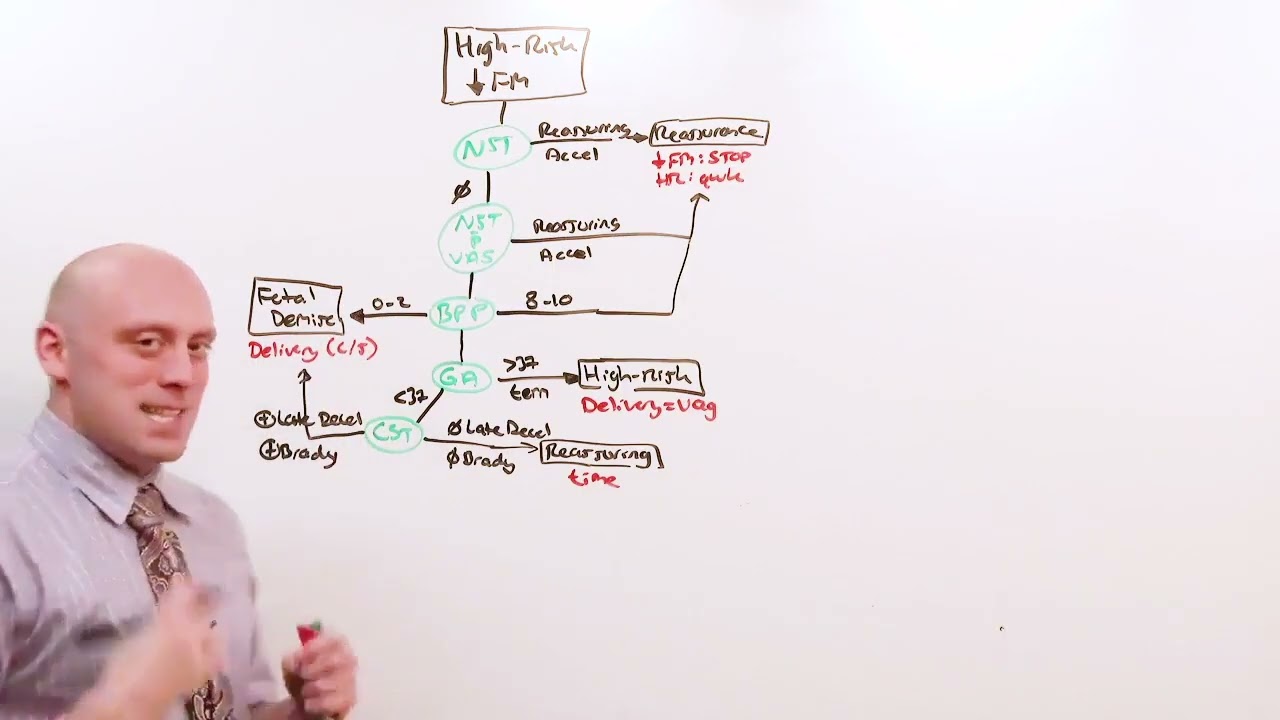 High-Risk
↓ FM
NST
Reassuring
Accel
Reassurance
↓FM: STOP
HR: qwk
Ø
NST
p̄
VAS
Reassuring
Accel
BPP
8-10
0-2
Fetal
Demise
Delivery (c/s)
GA
>37
term
High-Risk
Delivery=Vag
<37
CST
⊕Late Decel
⊕Brady
Ø Late Decel
Ø Brady
Reassuring
time